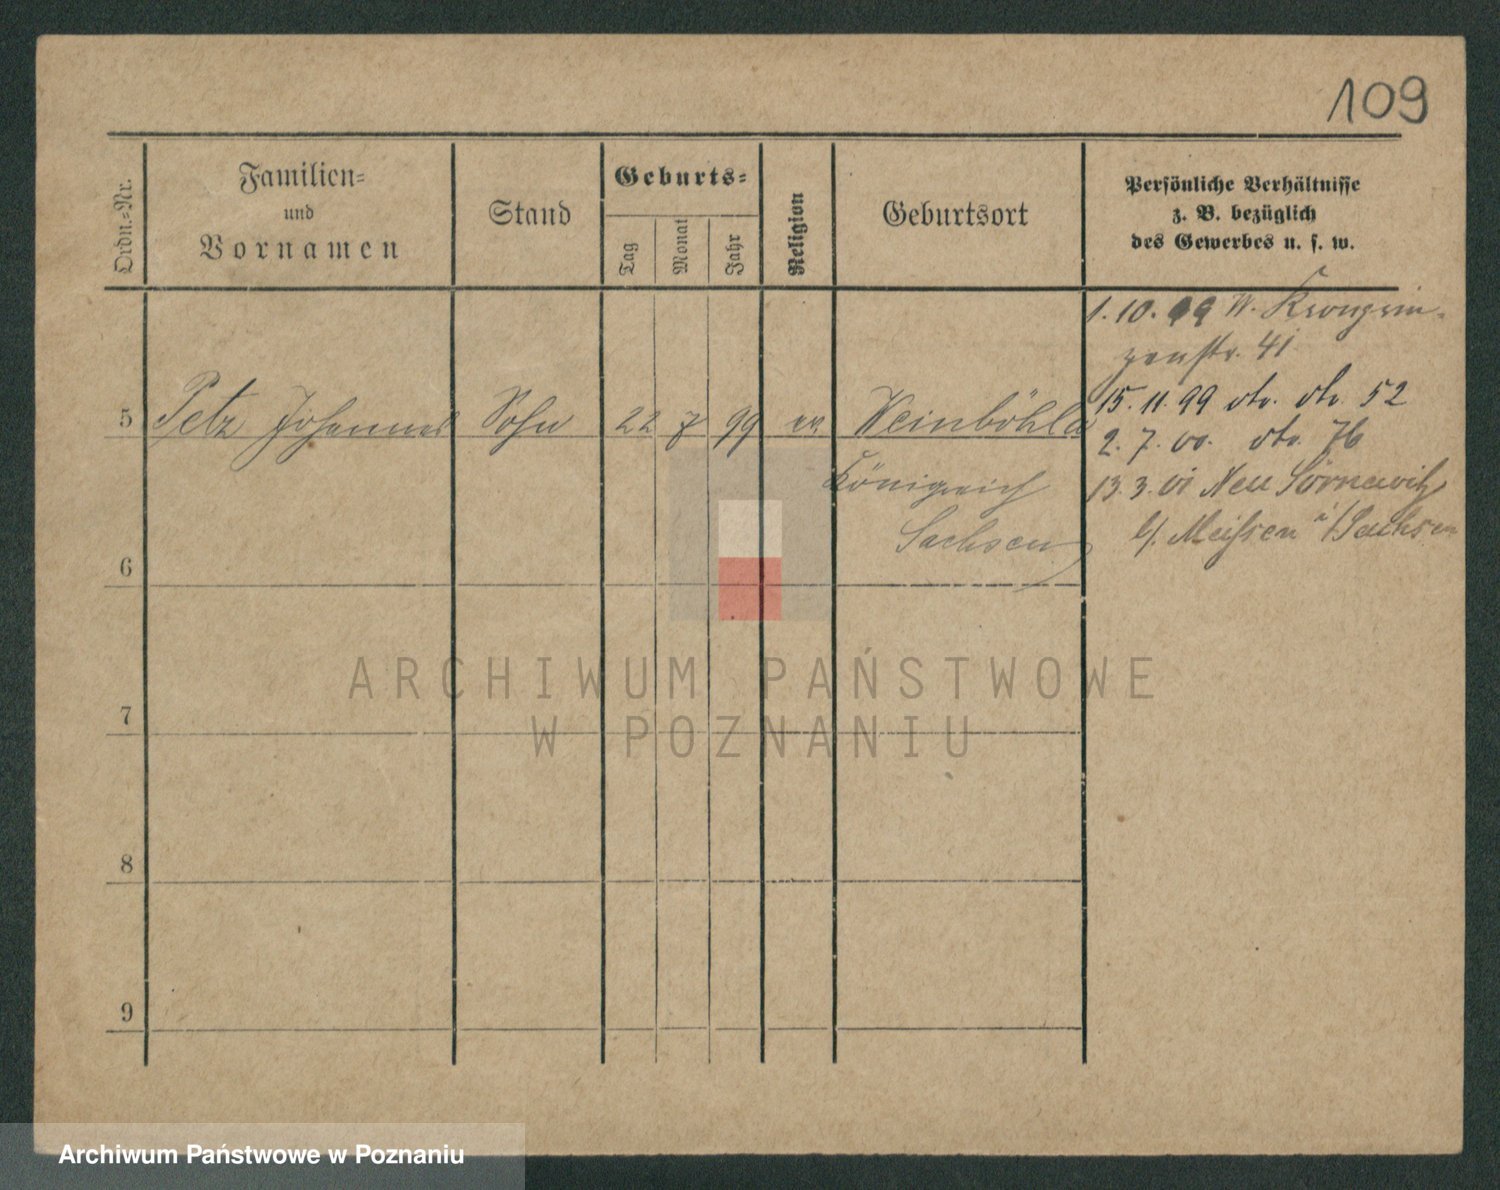 109
Ordn.-Nr.
Familien-
und
Vornamen
Stand
Geburts-
Tag
Monat
Jahr
Religion
Geburtsort
Persönliche Verhältnisse
z. B. bezüglich
des Gewerbes u. s. w.
5 Petz Johannes Sohn 22 7 99 ev. Weinböhla
Königreich
Sachsen
1. 10. 99 W. Kronprin-
zenstr. 41
15. 11. 99 dto. dto. 52
2. 7. 00. dto. 76
13. 3. 01 Neu Sörnewitz
b/. Meißen i/Sachsen
6
7
8
9
ARCHIWUM PAŃSTWOWE
W POZNANIU
Archiwum Państwowe w Poznaniu